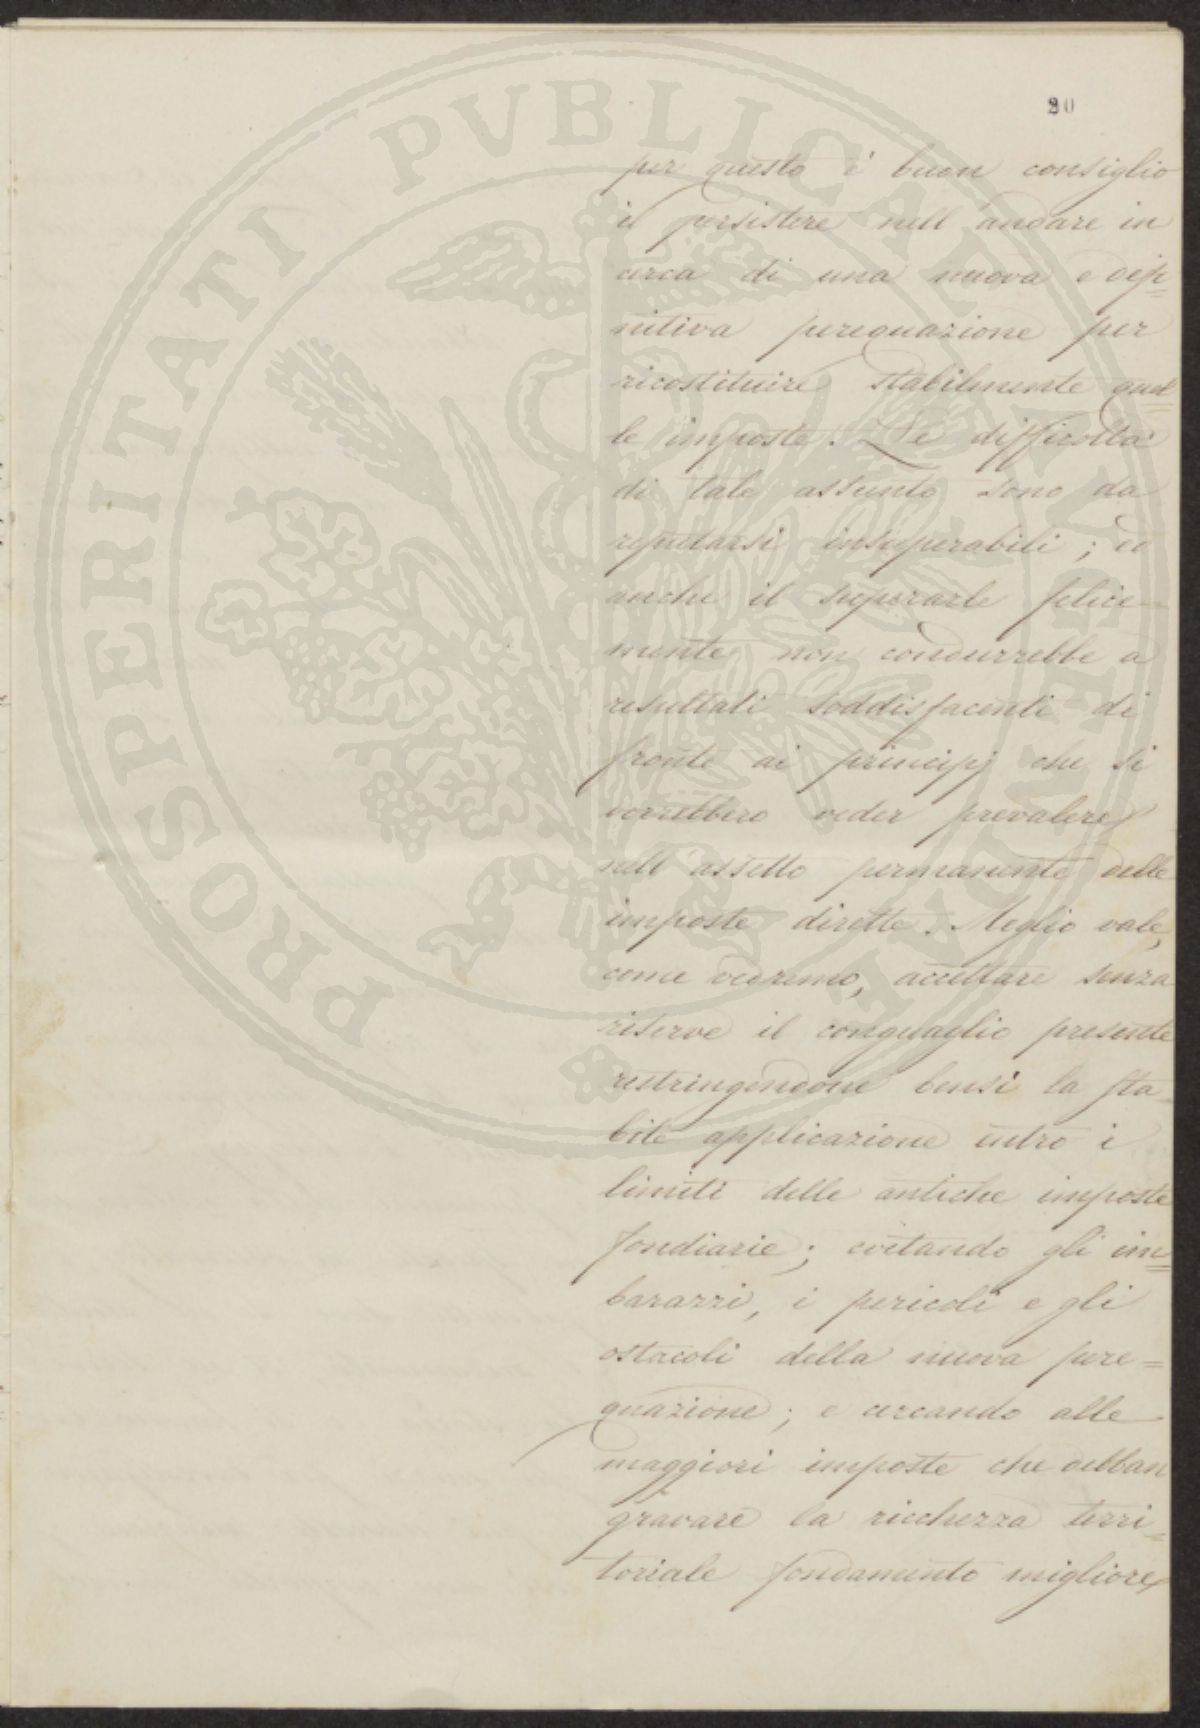 20
per questo è buon consiglio
il persistere nell'andare in
cerca di una nuova e defi=
nitiva perequazione per
ricostituire stabilmente quel=
le imposte. Le difficoltà
di tale assunto sono da
reputarsi insuperabili; ed
anche il superarle felice
mente non condurrebbe a
resultati soddisfacenti di
fronte ai principj che si
vorrebbero veder prevalere
nell'assetto permanente delle
imposte dirette. Meglio vale,
come vedremo, accettare senza
riserve il conguaglio presente
restringendone bensì la sta
bile applicazione entro i
limiti delle antiche imposte
fondiarie; evitando gli im=
barazzi, i pericoli e gli
ostacoli della nuova pere=
quazione; e cercando alle
maggiori imposte che debban
gravare la ricchezza terri=
toriale fondamento migliore
PROSPERITATI PVBLICAE AVGENDAE